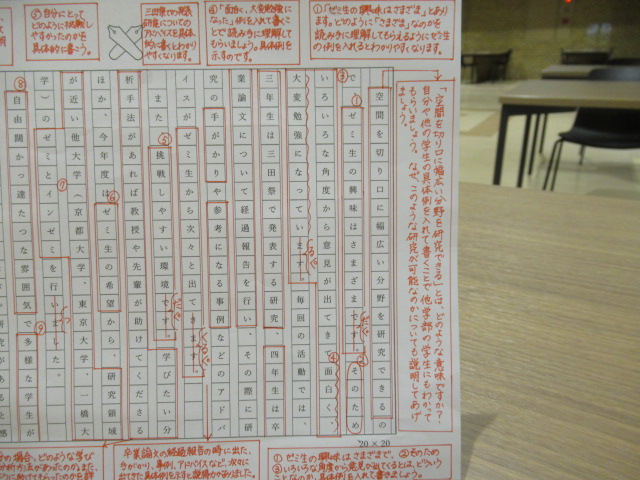 「空間を切り口に幅広い分野を研究できる」とは、どのような意味ですか?
自分や他の学生の具体例を入れて書くことで他学部の学生にもわかって
もらいましょう。なぜ、このような研究が可能なのかについても説明してあげ
ましょう。
①「ゼミ生の興味はさまざま」とあり
ます。どのように「さまざま」なのかを
読み手に理解してもらえるようにゼミ生
の例を入れるとわかりやすくなります。
④「面白く、大変勉強に
なった」例を入れて書くこ
とで読み手に理解して
もらいましょう。具体例を
示すのです。
三田祭での発表
研究についての
アドバイスを具体
的に書くとわかり
やすくなります。
⑤自分にとって
どのように挑戦し
やすかったのかを
具体的に書こう。
空間を切り口に幅広い分野を研究できるの
③で、①ゼミ生の興味はさまざまです。②そのため
いろいろな角度から意見が出て④面白く、
大変勉強になっています。毎回の活動では、
三年生は三田祭で発表する研究、四年生は卒
業論文について経過報告を行い、その際に研
究の手がかりや参考になる事例などのアドバ
イスがゼミ生から次々と出てきます。
また、⑤挑戦しやすい環境です。学びたい分
析手法があれば教授や先輩が助けてくださる
ほか、今年度は⑥ゼミ生の希望から、研究領域
が近い他大学(京都大学、東京大学、一橋大
学)の⑦ゼミとインゼミを行いました。
⑧自由闊かっ達たつな雰囲気で⑨多様な学生が
20×20
①ゼミ生の興味はさまざまで、②そのため
③いろいろな角度から意見が出てくるとは、どういう
ことなのか、具体例を入れて書きましょう。
卒業論文の経過報告の時に出た、